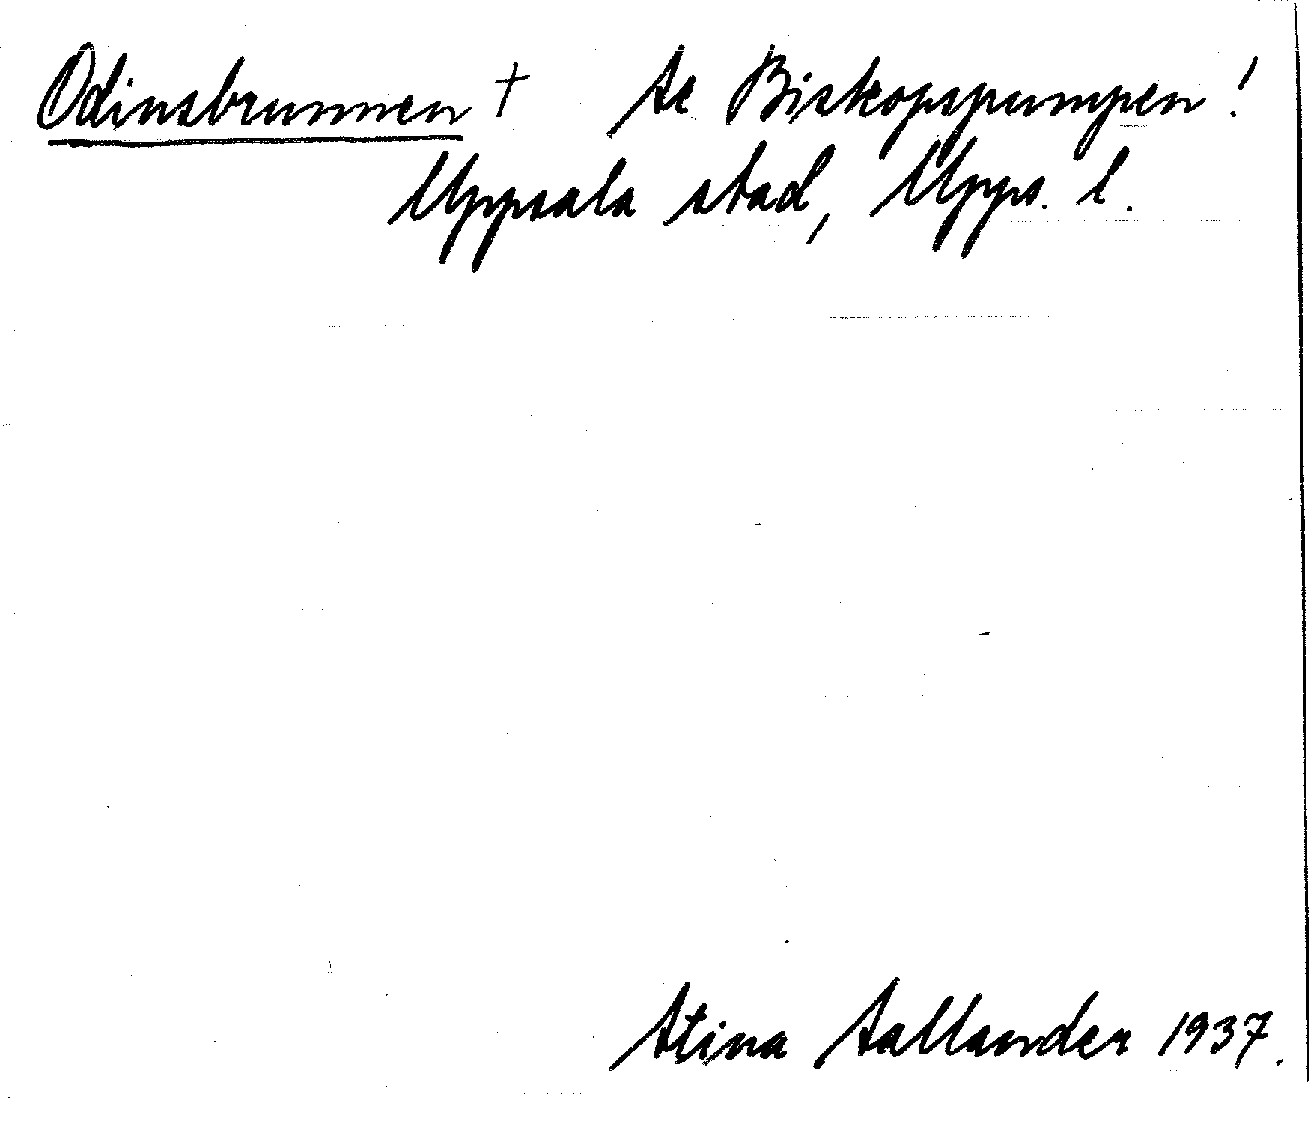 Odinsbrunnen † Se Biskopspumpen!
Uppsala stad, Upps. l.
Stina Sallander 1937.